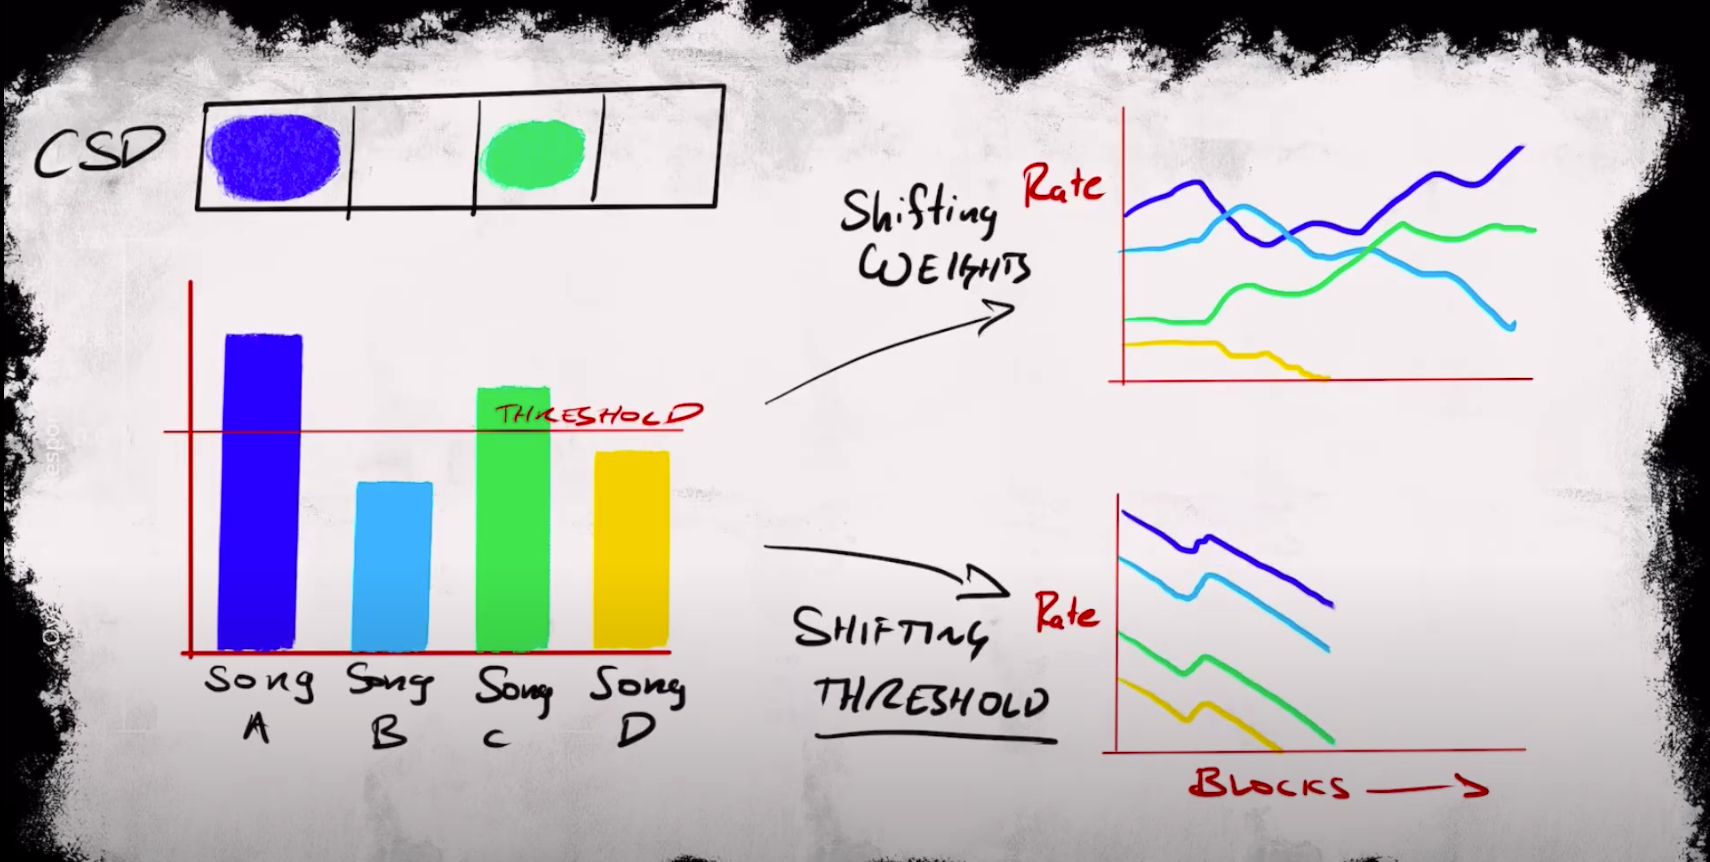 CSD
THRESHOLD
Song A
Song B
Song C
Song D
Shifting
WEIGHTS
Rate
SHIFTING
THRESHOLD
Rate
BLOCKS